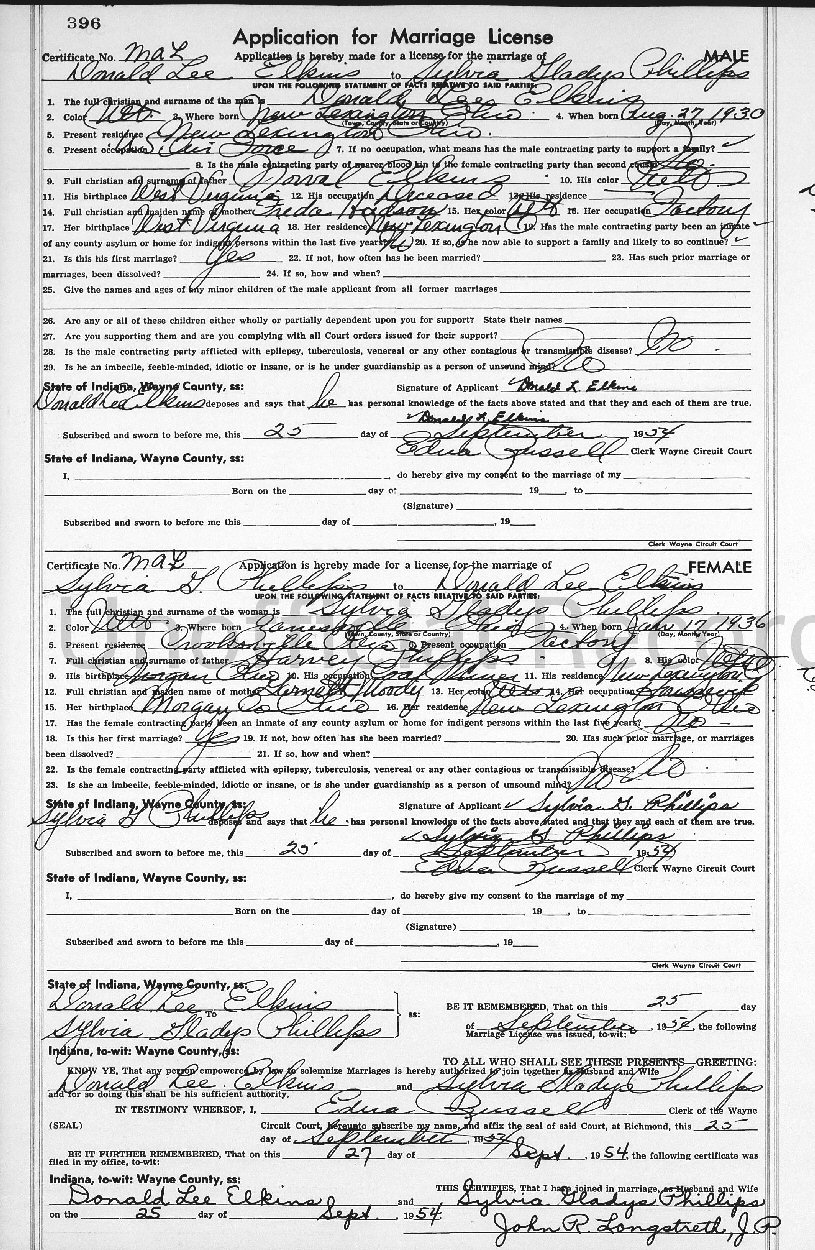 396
Application for Marriage License
Certificate No. Mal Application is hereby made for a license for the marriage of MALE
Donald Lee Elkins to Sylvia Gladys Phillips
UPON THE FOLLOWING STATEMENT OF FACTS RELATIVE TO SAID PARTIES:
1. The full christian and surname of the man is Donald Lee Elkins
2. Color 3. Where born New Lexington Ohio 4. When born Aug. 27, 1930
(Town, County, State or Country) (Day, Month, Year)
5. Present residence New Lexington Ohio
6. Present occupation Air Force 7. If no occupation, what means has the male contracting party to support a family? ✓
8. Is the male contracting party of nearer blood kin to the female contracting party than second cousin? No
9. Full christian and surname of father Norval Elkins 10. His color
11. His birthplace West Virginia 12. His occupation Deceased 13. His residence
14. Full christian and maiden name of mother Freda Hudson 15. Her color 16. Her occupation Factory
17. Her birthplace West Virginia 18. Her residence New Lexington O 19. Has the male contracting party been an inmate ✓
of any county asylum or home for indigent persons within the last five years? No 20. If so, is he now able to support a family and likely to so continue? ✓
21. Is this his first marriage? Yes 22. If not, how often has he been married? 23. Has such prior marriage or
marriages, been dissolved? 24. If so, how and when?
25. Give the names and ages of any minor children of the male applicant from all former marriages
26. Are any or all of these children either wholly or partially dependent upon you for support? State their names
27. Are you supporting them and are you complying with all Court orders issued for their support?
28. Is the male contracting party afflicted with epilepsy, tuberculosis, venereal or any other contagious or transmissible disease? No
29. Is he an imbecile, feeble-minded, idiotic or insane, or is he under guardianship as a person of unsound mind? No
State of Indiana, Wayne County, ss: Signature of Applicant ✓ Donald L. Elkins
Donald Lee Elkins deposes and says that he has personal knowledge of the facts above stated and that they and each of them are true.
✓ Donald L. Elkins
Subscribed and sworn to before me, this 25 day of September 1954
State of Indiana, Wayne County, ss: Edna Russell Clerk Wayne Circuit Court
I, , do hereby give my consent to the marriage of my
Born on the day of 19 , to
(Signature)
Subscribed and sworn to before me this day of , 19
Clerk Wayne Circuit Court
Certificate No. Mal Application is hereby made for a license for the marriage of FEMALE
Sylvia G. Phillips to Donald Lee Elkins
UPON THE FOLLOWING STATEMENT OF FACTS RELATIVE TO SAID PARTIES:
1. The full christian and surname of the woman is Sylvia Gladys Phillips
2. Color 3. Where born Zanesville Ohio 4. When born Jan 17 1936
(Town, County, State or Country) (Day, Month, Year)
5. Present residence Crooksville Ohio 6. Present occupation Factory
7. Full christian and surname of father Harvey Phillips 8. His color
9. His birthplace Morgan Ohio 10. His occupation Coal Miner 11. His residence New Lexington O
12. Full christian and maiden name of mother Moody 13. Her color 14. Her occupation Housewife
15. Her birthplace Morgan Co Ohio 16. Her residence New Lexington Ohio
17. Has the female contracting party been an inmate of any county asylum or home for indigent persons within the last five years? No
18. Is this her first marriage? Yes 19. If not, how often has she been married? 20. Has such prior marriage, or marriages
been dissolved? 21. If so, how and when?
22. Is the female contracting party afflicted with epilepsy, tuberculosis, venereal or any other contagious or transmissible disease? No
23. Is she an imbecile, feeble-minded, idiotic or insane, or is she under guardianship as a person of unsound mind? No
State of Indiana, Wayne County, ss: Signature of Applicant ✓ Sylvia G. Phillips
Sylvia G Phillips deposes and says that he has personal knowledge of the facts above stated and that they and each of them are true.
✓ Sylvia G Phillips
Subscribed and sworn to before me, this 25 day of September 1954
Edna Russell Clerk Wayne Circuit Court
State of Indiana, Wayne County, ss:
I, , do hereby give my consent to the marriage of my
Born on the day of 19 , to
(Signature)
Subscribed and sworn to before me this day of , 19
Clerk Wayne Circuit Court
State of Indiana, Wayne County, ss:
Donald Lee Elkins
To ss: BE IT REMEMBERED, That on this 25 day
Sylvia Gladys Phillips of September, 1954, the following
Marriage License was issued, to-wit:
Indiana, to-wit: Wayne County, ss:
TO ALL WHO SHALL SEE THESE PRESENTS—GREETING:
KNOW YE, That any person empowered by law to solemnize Marriages is hereby authorized to join together as Husband and Wife
Donald Lee Elkins and Sylvia Gladys Phillips
and for so doing this shall be his sufficient authority.
IN TESTIMONY WHEREOF, I, Edna Russell Clerk of the Wayne
(SEAL) Circuit Court, hereunto subscribe my name, and affix the seal of said Court, at Richmond, this 25
day of September, 1954
BE IT FURTHER REMEMBERED, That on this 27 day of Sept. 1954, the following certificate was
filed in my office, to-wit:
Indiana, to-wit: Wayne County, ss:
THIS CERTIFIES, That I have joined in marriage, as Husband and Wife
Donald Lee Elkins and Sylvia Gladys Phillips
on the 25 day of Sept. 1954.
John R. Longstreth, J.P.